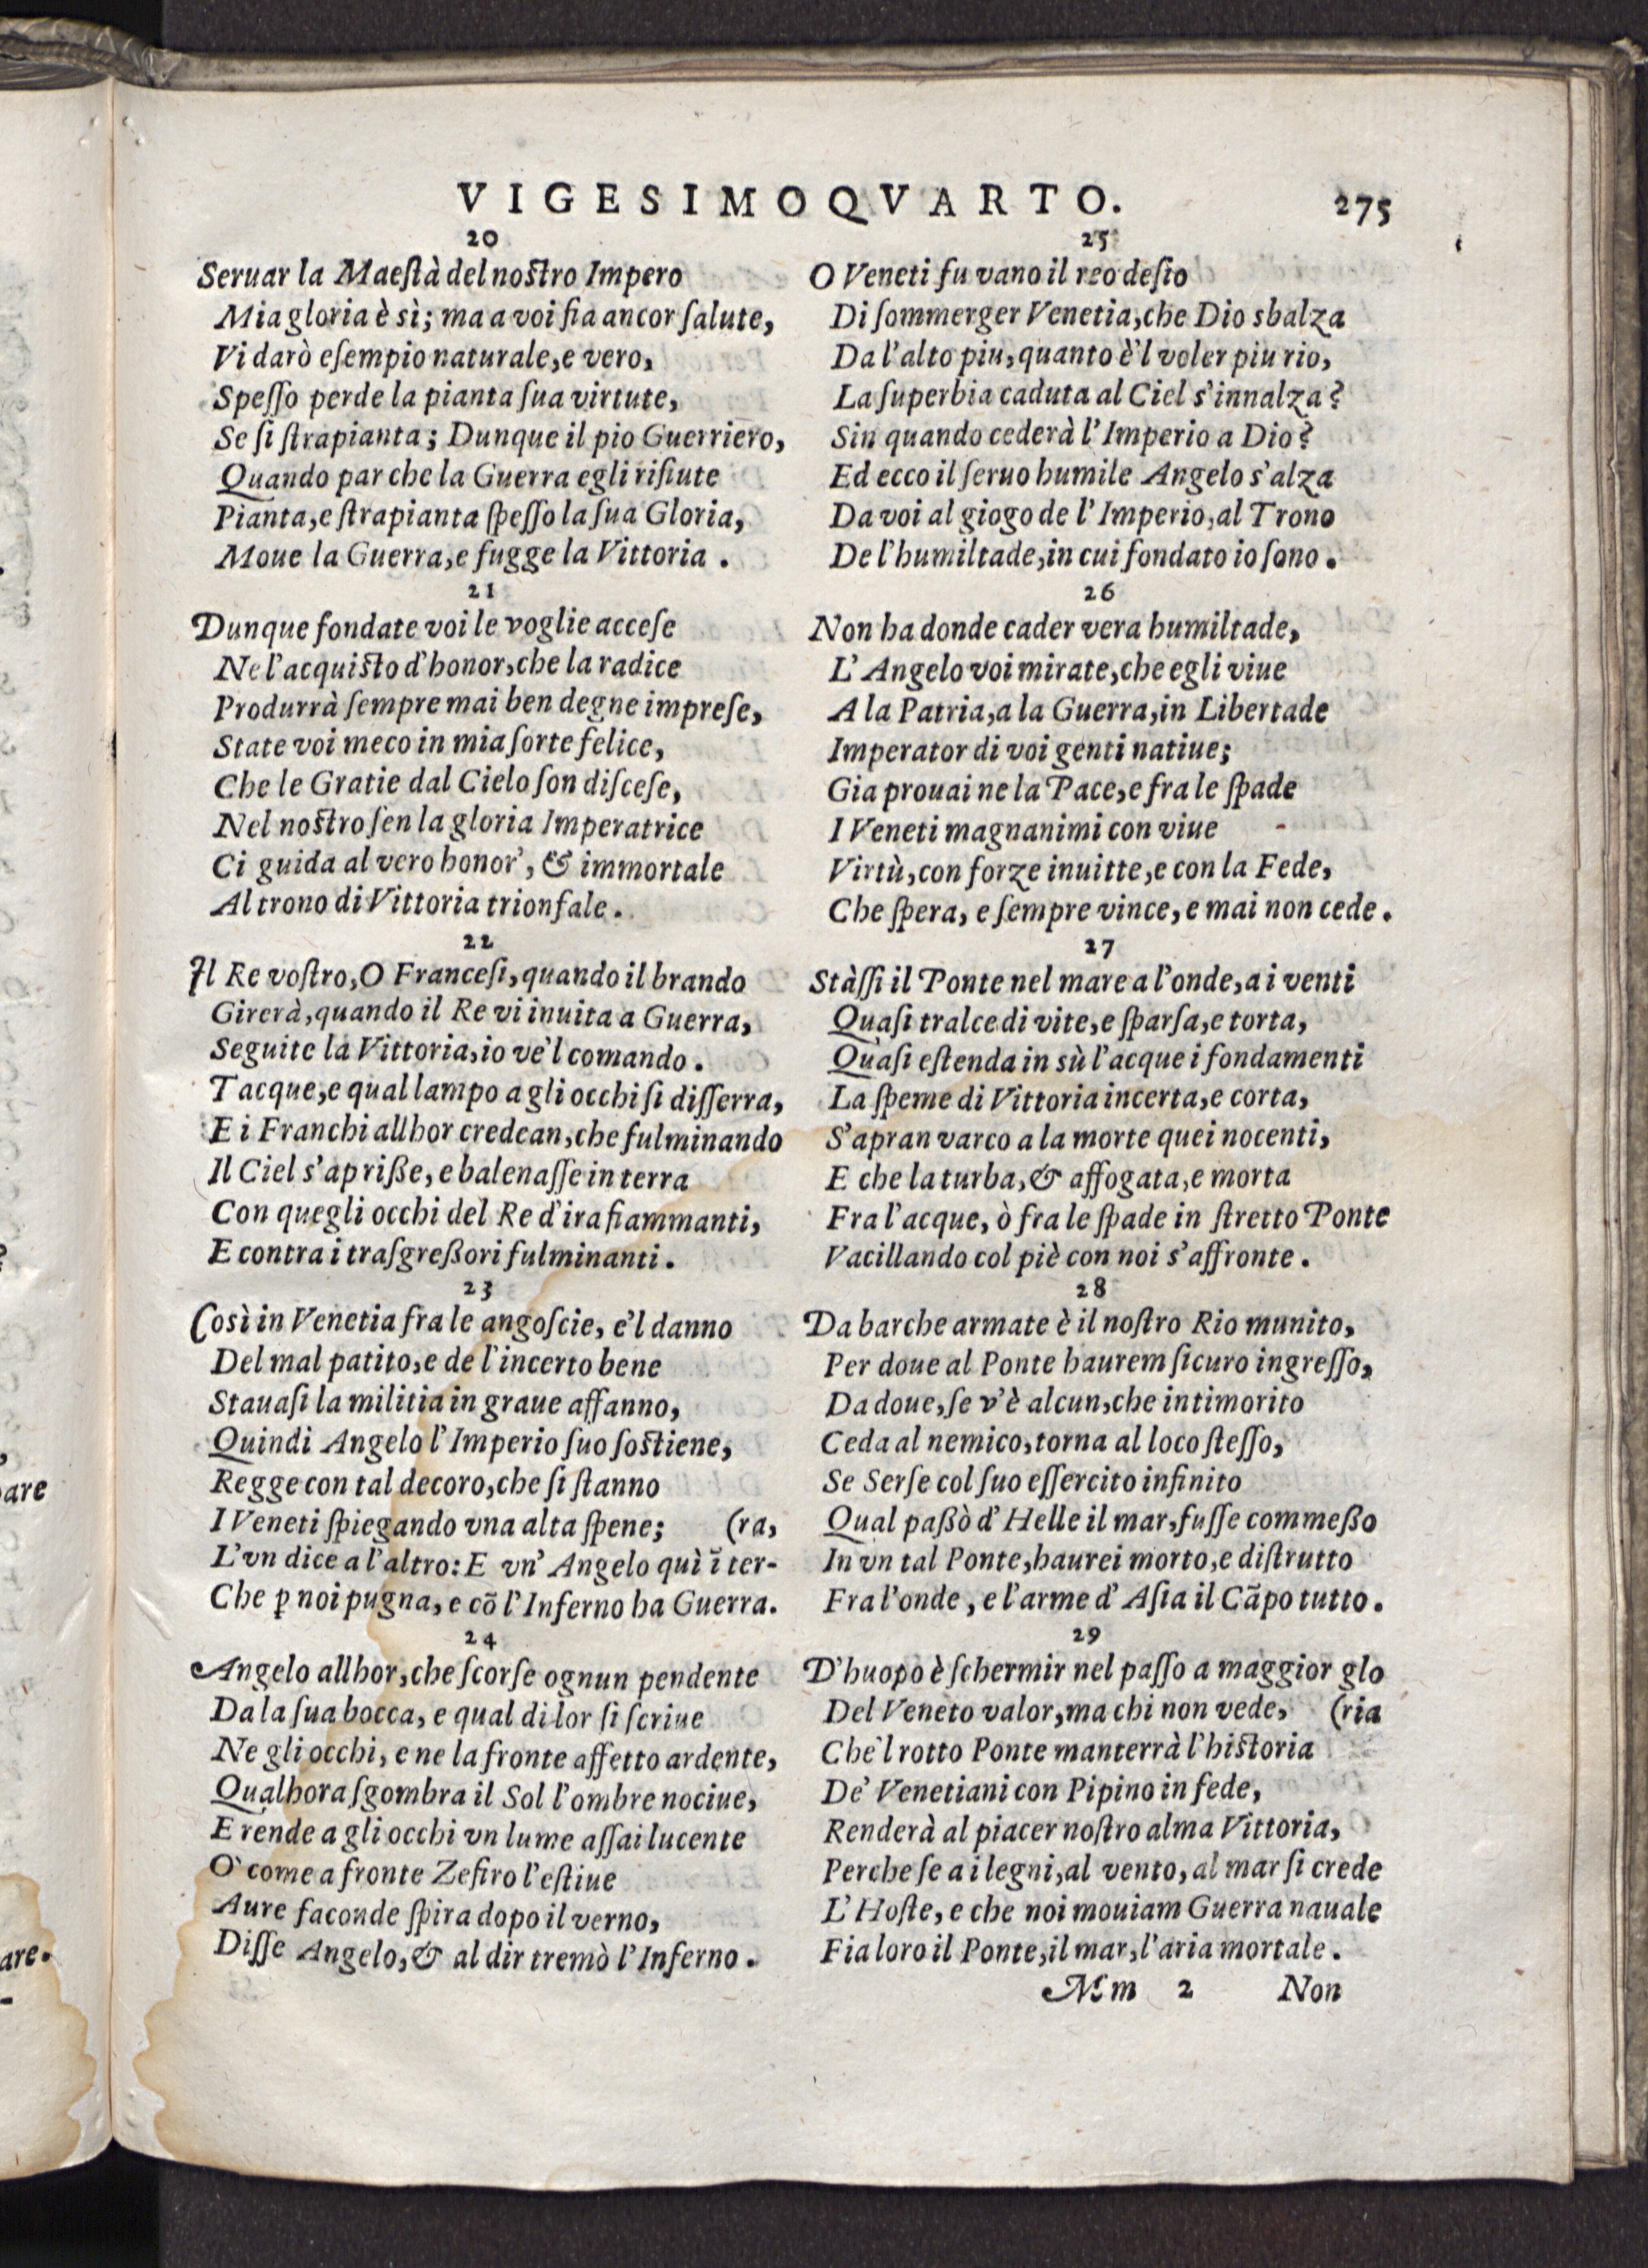 VIGESIMOQVARTO. 275
20
Seruar la Maeſtà del noſtro Impero
Mia gloria è sì; ma a voi fia ancor ſalute,
Vi darò eſempio naturale, e vero,
Speſſo perde la pianta ſua virtute,
Se ſi ſtrapianta; Dunque il pio Guerriero,
Quando par che la Guerra egli rifiute
Pianta, e ſtrapianta ſpeſſo la ſua Gloria,
Moue la Guerra, e fugge la Vittoria.
21
Dunque fondate voi le voglie acceſe
Ne l'acquiſto d'honor, che la radice
Produrrà ſempre mai ben degne impreſe,
State voi meco in mia ſorte felice,
Che le Gratie dal Cielo ſon diſceſe,
Nel noſtro ſen la gloria Imperatrice
Ci guida al vero honor', & immortale
Al trono di Vittoria trionfale.
22
Il Re voſtro, O Franceſi, quando il brando
Girerà, quando il Re vi inuita a Guerra,
Seguite la Vittoria, io ve'l comando.
Tacque, e qual lampo a gli occhi ſi diſſerra,
E i Franchi allhor credean, che fulminando
Il Ciel s'apriße, e balenaſſe in terra
Con quegli occhi del Re d'ira fiammanti,
E contra i traſgreßori fulminanti.
23
Così in Venetia fra le angoſcie, e'l danno
Del mal patito, e de l'incerto bene
Stauaſi la militia in graue affanno,
Quindi Angelo l'Imperio ſuo ſoſtiene,
Regge con tal decoro, che ſi ſtanno
I Veneti ſpiegando vna alta ſpene; (ra,
L'vn dice a l'altro: E vn' Angelo quì ĩ ter-
Che ꝑ noi pugna, e cõ l'Inferno ha Guerra.
24
Angelo allhor, che ſcorſe ognun pendente
Da la ſua bocca, e qual di lor ſi ſcriue
Ne gli occhi, e ne la fronte affetto ardente,
Qualhora ſgombra il Sol l'ombre nociue,
E rende a gli occhi vn lume aſſai lucente
O' come a fronte Zefiro l'eſtiue
Aure faconde ſpira dopo il verno,
Diſſe Angelo, & al dir tremò l'Inferno.
25
O Veneti fu vano il reo deſio
Di ſommerger Venetia, che Dio sbalza
Da l'alto piu, quanto è'l voler piu rio,
La ſuperbia caduta al Ciel s'innalza?
Sin quando cederà l'Imperio a Dio?
Ed ecco il ſeruo humile Angelo s'alza
Da voi al giogo de l'Imperio, al Trono
De l'humiltade, in cui fondato io ſono.
26
Non ha donde cader vera humiltade,
L'Angelo voi mirate, che egli viue
A la Patria, a la Guerra, in Libertade
Imperator di voi genti natiue;
Gia prouai ne la Pace, e fra le ſpade
I Veneti magnanimi con viue
Virtù, con forze inuitte, e con la Fede,
Che ſpera, e ſempre vince, e mai non cede.
27
Stàſſi il Ponte nel mare a l'onde, a i venti
Quaſi tralce di vite, e ſparſa, e torta,
Quaſi eſtenda in sù l'acque i fondamenti
La ſpeme di Vittoria incerta, e corta,
S'apran varco a la morte quei nocenti,
E che la turba, & affogata, e morta
Fra l'acque, ò fra le ſpade in ſtretto Ponte
Vacillando col piè con noi s'affronte.
28
Da barche armate è il noſtro Rio munito,
Per doue al Ponte haurem ſicuro ingreſſo,
Da doue, ſe v'è alcun, che intimorito
Ceda al nemico, torna al loco ſteſſo,
Se Serſe col ſuo eſſercito infinito
Qual paßò d'Helle il mar, fuſſe commeßo
In vn tal Ponte, haurei morto, e diſtrutto
Fra l'onde, e l'arme d'Aſia il Cãpo tutto.
29
D'huopo è ſchermir nel paſſo a maggior glo
Del Veneto valor, ma chi non vede, (ria
Che'l rotto Ponte manterrà l'hiſtoria
De' Venetiani con Pipino in fede,
Renderà al piacer noſtro alma Vittoria,
Perche ſe a i legni, al vento, al mar ſi crede
L'Hoſte, e che noi mouiam Guerra nauale
Fia loro il Ponte, il mar, l'aria mortale.
Mm 2 Non